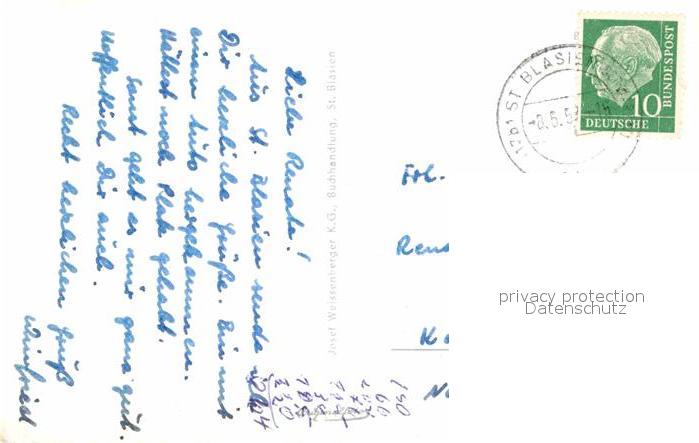 Liebe Renate!
Aus St. Blasien sende ich
Dir herzliche Grüße. Bin mit
einem Auto hergekommen.
Hättest noch Platz gehabt.
Sonst geht es mir ganz gut.
Hoffentlich Dir auch.
Recht herzlichen Gruß
Winfried
Josef Weissenberger K.G., Buchhandlung, St. Blasien
Frl.
Rena
K
N
150
60
ST BLASIEN
-8.6.5
10
DEUTSCHE
BUNDESPOST
privacy protection
Datenschutz